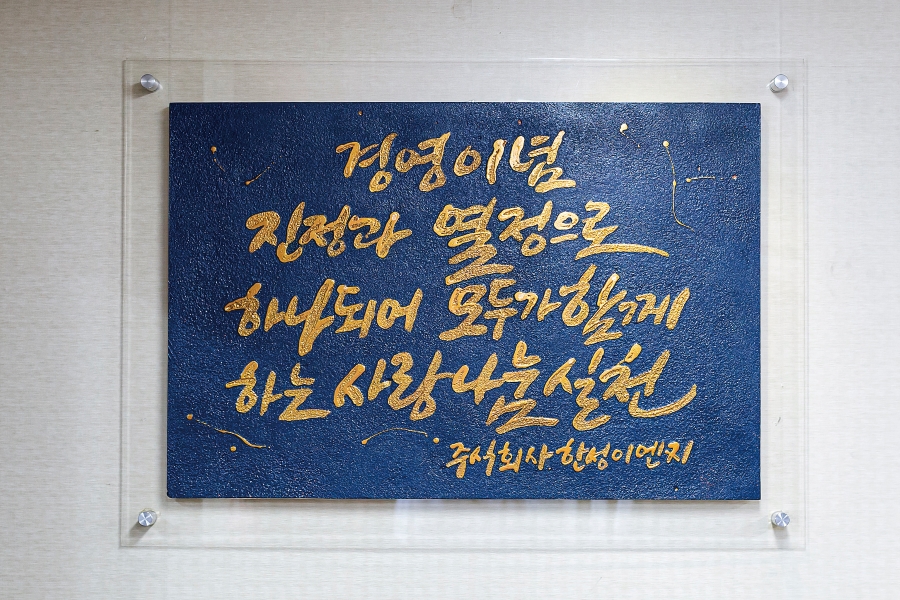 경영이념
진정과 열정으로
하나되어 모두가 함께
하는 사랑나눔실천
주식회사 한성이엔지